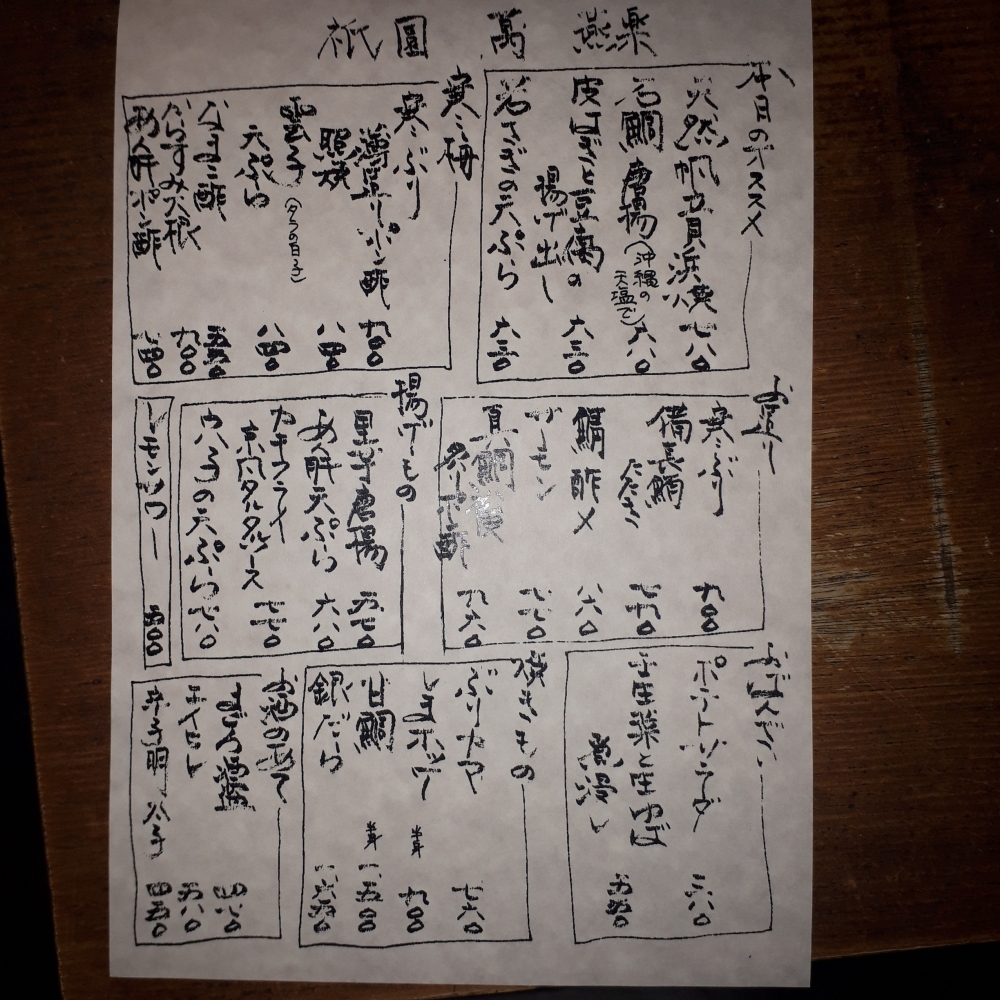 祇園 萬燕楽
本日のオススメ
天然帆立貝浜焼 七八〇
石鯛唐揚(沖縄の天塩で) 六八〇
皮はぎと豆腐の揚げ出し 六三〇
若さぎの天ぷら 六三〇
寒ぶり
薄造りポン酢 九〇〇
照焼 八四〇
雲子(タラの白子)
天ぷら 八四〇
なまこ酢 五五〇
からすみ大根 九〇〇
あん肝ポン酢 八四〇
お造り
寒ぶり 九〇〇
備長鮪たたき 七九〇
鯖酢〆 八六〇
サーモン 七七〇
真鯛
炙りポン酢 九六〇
揚げもの
里芋唐揚 五七〇
あん肝天ぷら 六八〇
カキフライ
タルタルソース 七七〇
穴子の天ぷら 七八〇
レモンサワー 五〇〇
おばんざい
ポテトサラダ 三八〇
壬生菜と生ゆば
煮浸し 五五〇
焼きもの
ぶりカマ 七六〇
しまホッケ 半 九〇〇
甘鯛 半 一、五〇〇
銀だら 一、六五〇
お酒のあて
まぐろ酒盗 四八〇
エイヒレ 五八〇
辛子明太子 四五〇